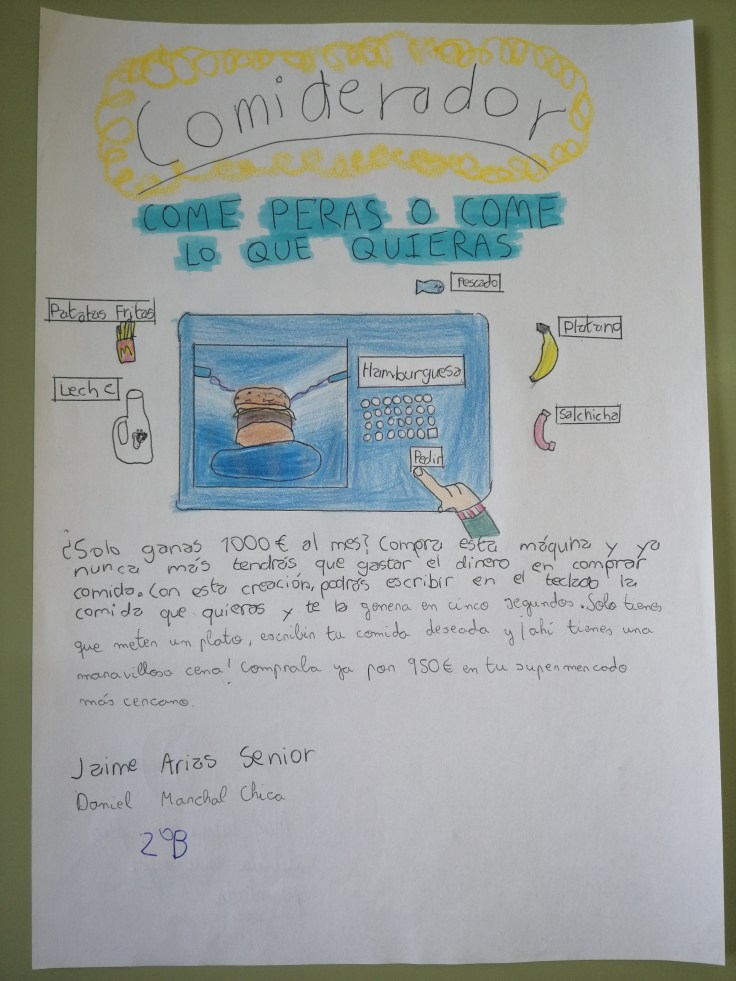 Comiderador
COME PERAS O COME
LO QUE QUIERAS
Pescado
Patatas Fritas
M
Platano
Leche
Hamburguesa
Salchicha
Pedir
¿Solo ganas 1000€ al mes? Compra esta máquina y ya
nunca más tendrás que gastar el dinero en comprar
comida. Con esta creación, podrás escribir en el teclado la
comida que quieras y te la genera en cinco segundos. Solo tienes
que meter un plato, escribir tu comida deseada y ¡ahí tienes una
maravillosa cena! Comprala ya por 950€ en tu supermercado
más cercano.
Jaime Arias Senior
Daniel Marchal Chica
2ºB